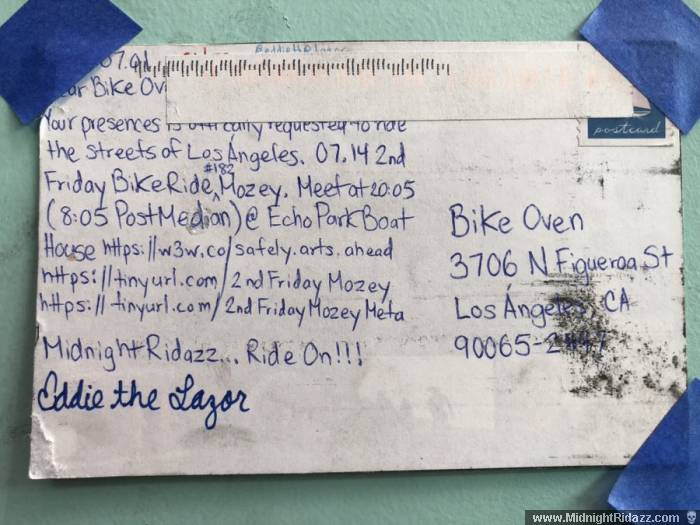 07.01
Bike Ov
Your presences is officially requested to ride
the streets of Los Ángeles. 07.14 2nd
Friday Bike Ride #182 Mozey. Meet at 20:05
(8:05 Post Median) @ Echo Park Boat
House https://w3w.co/safely.arts.ahead
https://tinyurl.com/2ndFridayMozey
https://tinyurl.com/2ndFridayMozeyMeta
Midnight Ridazz... Ride On!!!
Eddie the Lazor
postcard
Bike Oven
3706 N Figueroa St
Los Ángeles, CA
90065-
www.MidnightRidazz.com